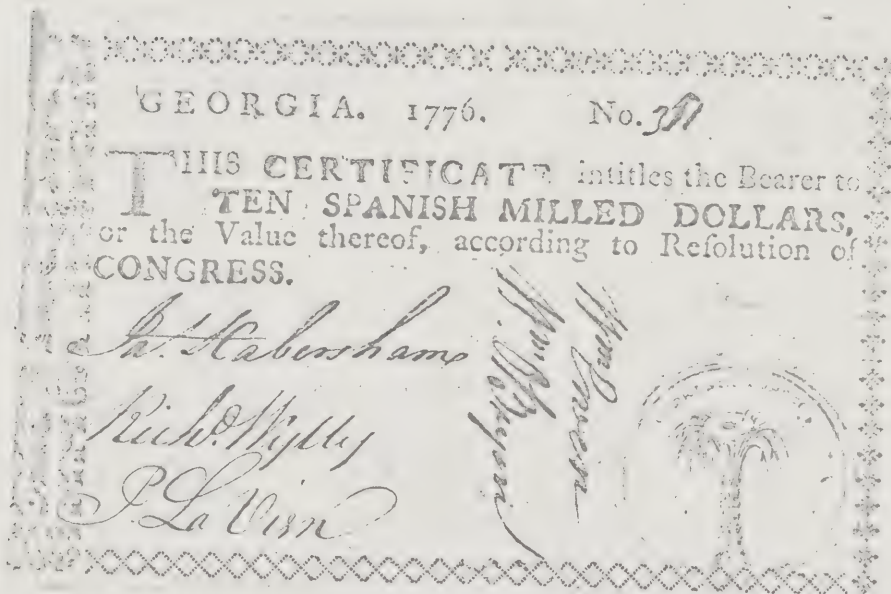 GEORGIA. 1776. No.
THIS CERTIFICATE intitles the Bearer to
TEN SPANISH MILLED DOLLARS,
or the Value thereof, according to Reſolution of
CONGRESS.
Jas. Habersham
Richd. Wylly
P. La Vien
Wm.
Wm.